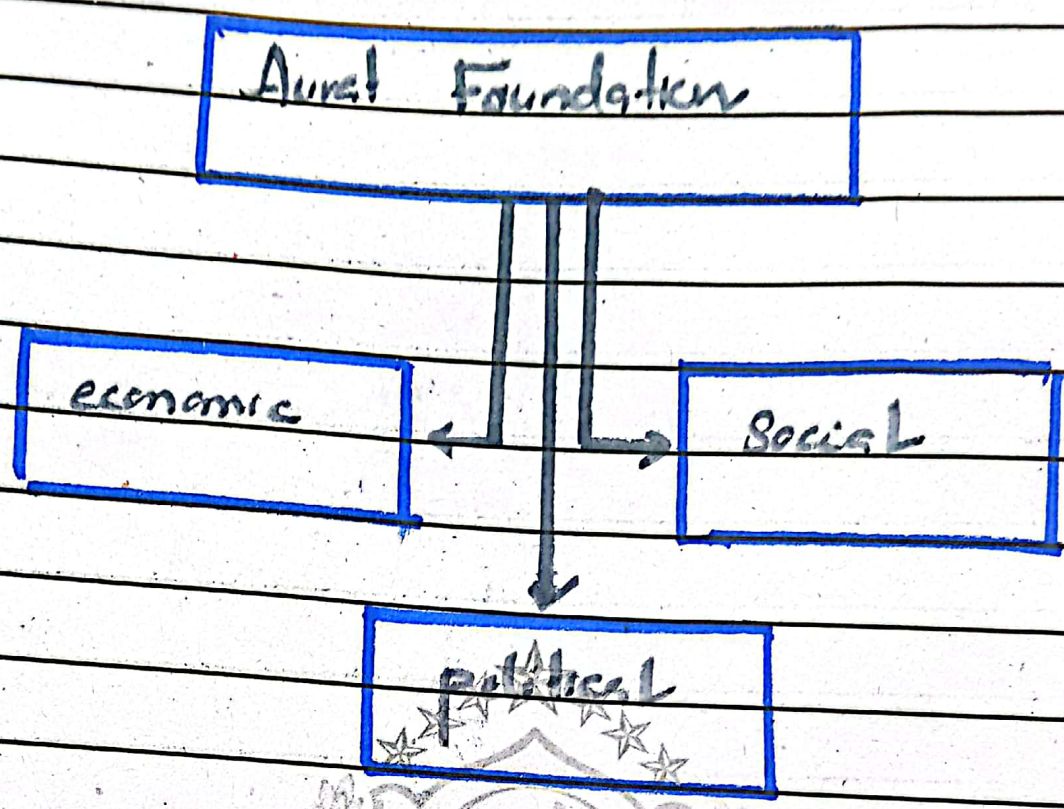 Aurat Foundation
economic
Social
political